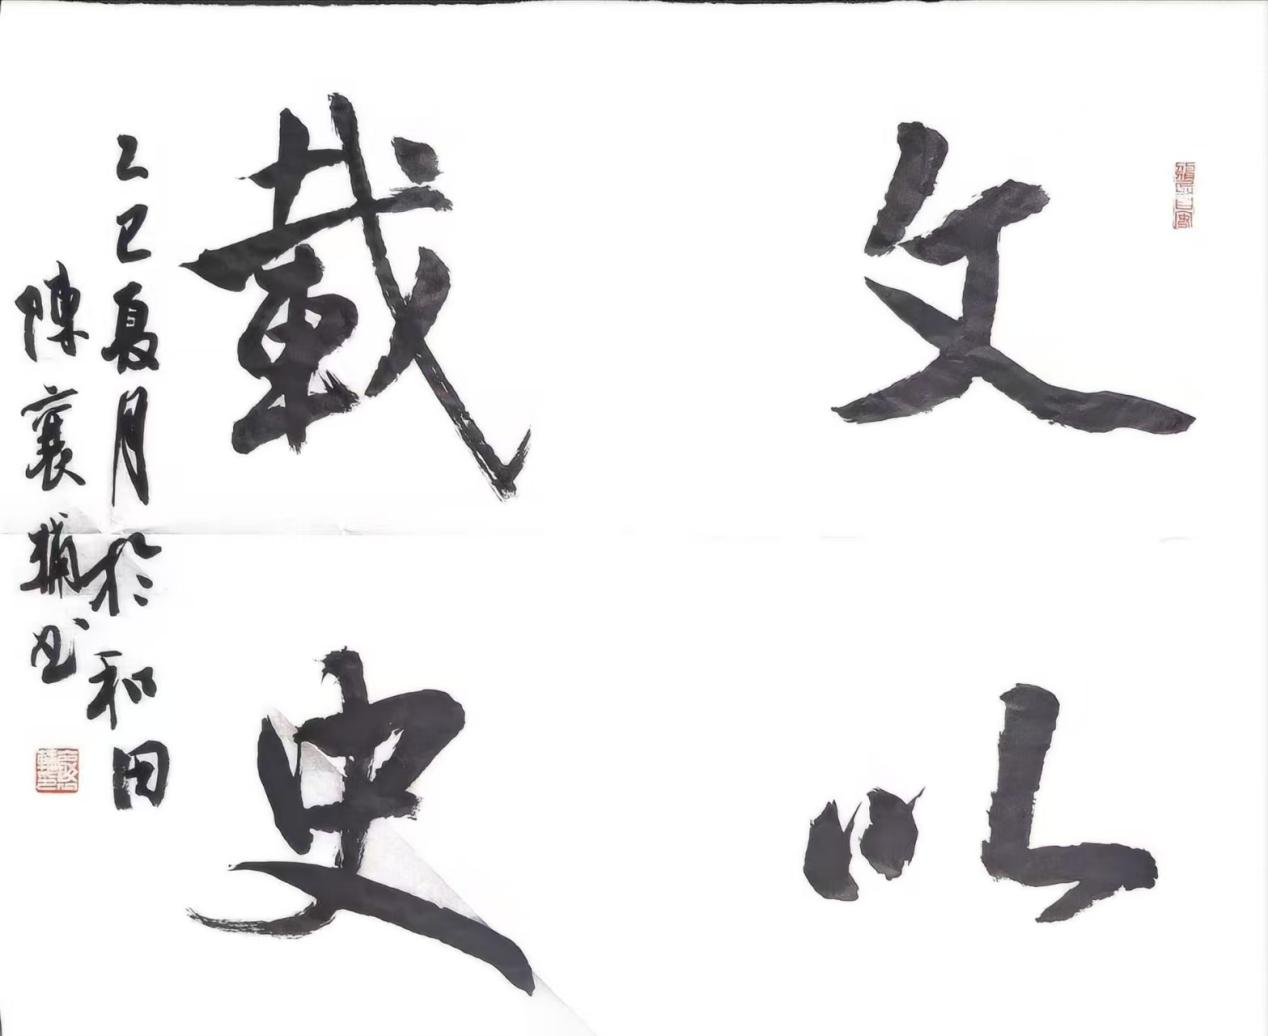 文以
載史
乙巳夏月於和田
陳襄輔书